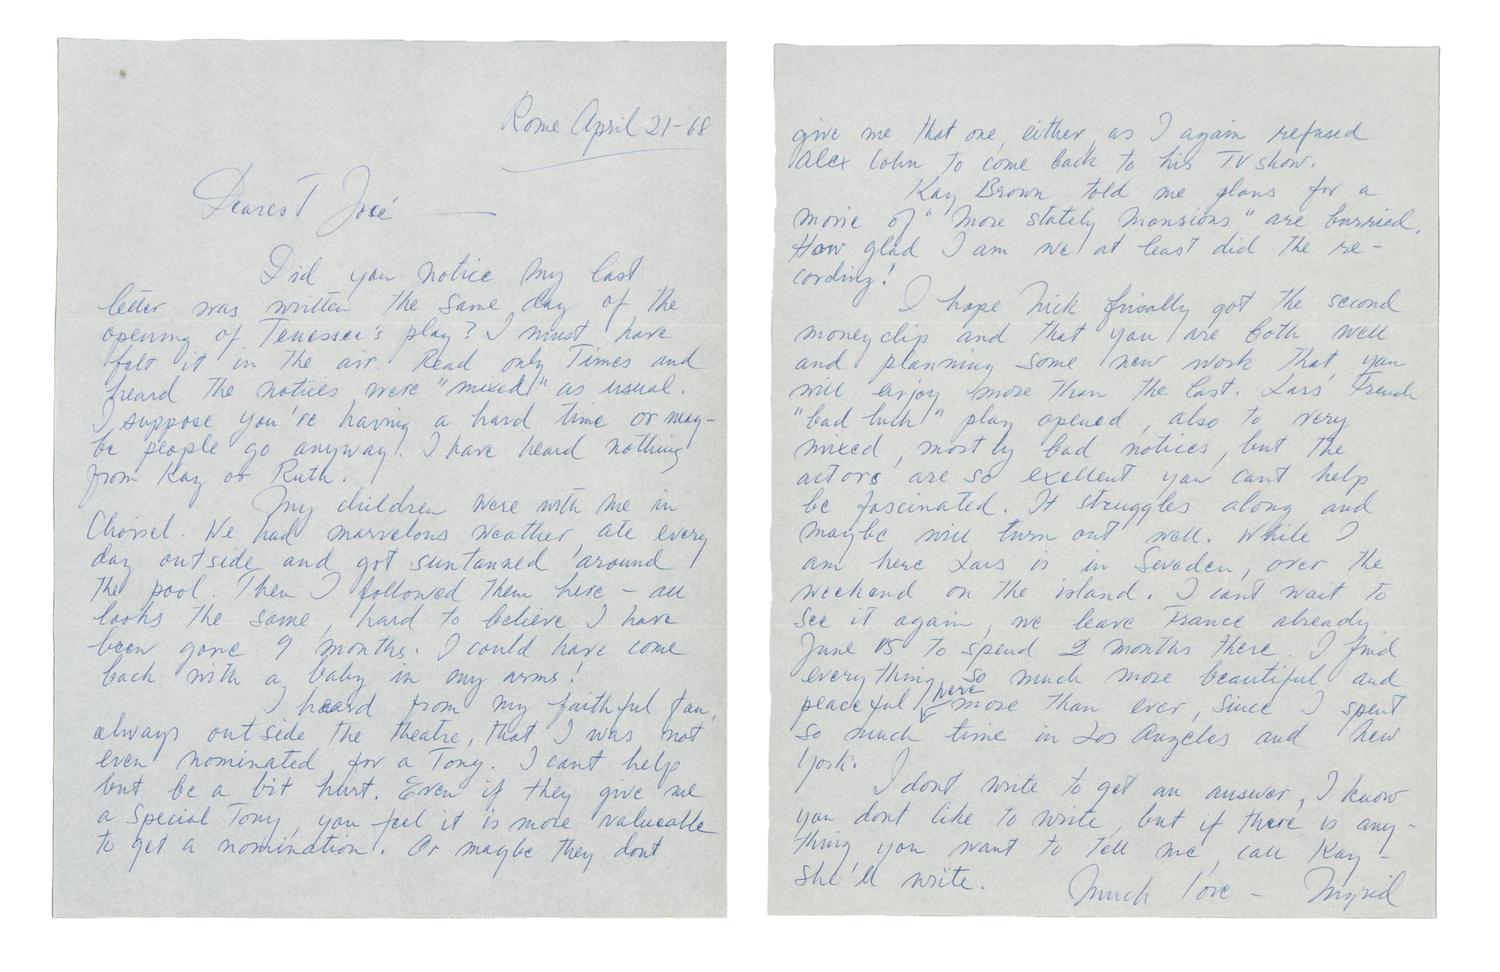 Rome April 21-68
Dearest José —
Did you notice my last
letter was written the same day of the
opening of Tenessee's play? I must have
felt it in the air. Read only Times and
heard the notices were "mixed" as usual.
I suppose you're having a hard time or may-
be people go anyway. I have heard nothing
from Kay or Ruth.
My children were with me in
Choisel. We had marvelous weather, ate every
day outside and got suntanned around
the pool. Then I followed them here – all
looks the same, hard to believe I have
been gone 9 months. I could have come
back with a baby in my arms!
I heard from my faithful fan,
always outside the theatre, that I was not
even nominated for a Tony. I cant help
but be a bit hurt. Even if they give me
a Special Tony, you feel it is more valueable
to get a nomination. Or maybe they dont
give me that one, either, as I again refused
Alex Cohn to come back to his TV show.
Kay Brown told me plans for a
movie of "More stately mansions" are burried.
How glad I am we at least did the re-
cording!
I hope Nick finally got the second
moneyclip and that you are both well
and planning some new work that you
will enjoy more than the last. Lars' French
"bad luck" play opened, also to very
mixed, mostly bad notices, but the
actors are so excellent you cant help
be fascinated. It struggles along and
maybe will turn out well. While I
am here Lars is in Sweden, over the
weekend on the island. I cant wait to
see it again, we leave France already
June 15 to spend 2 months there. I find
everything so much more beautiful and
peaceful here more than ever, since I spent
so much time in Los Angeles and New
York.
I dont write to get an answer, I know
you dont like to write, but if there is any-
thing you want to tell me, call Kay –
she'll write.
Much love – Ingrid